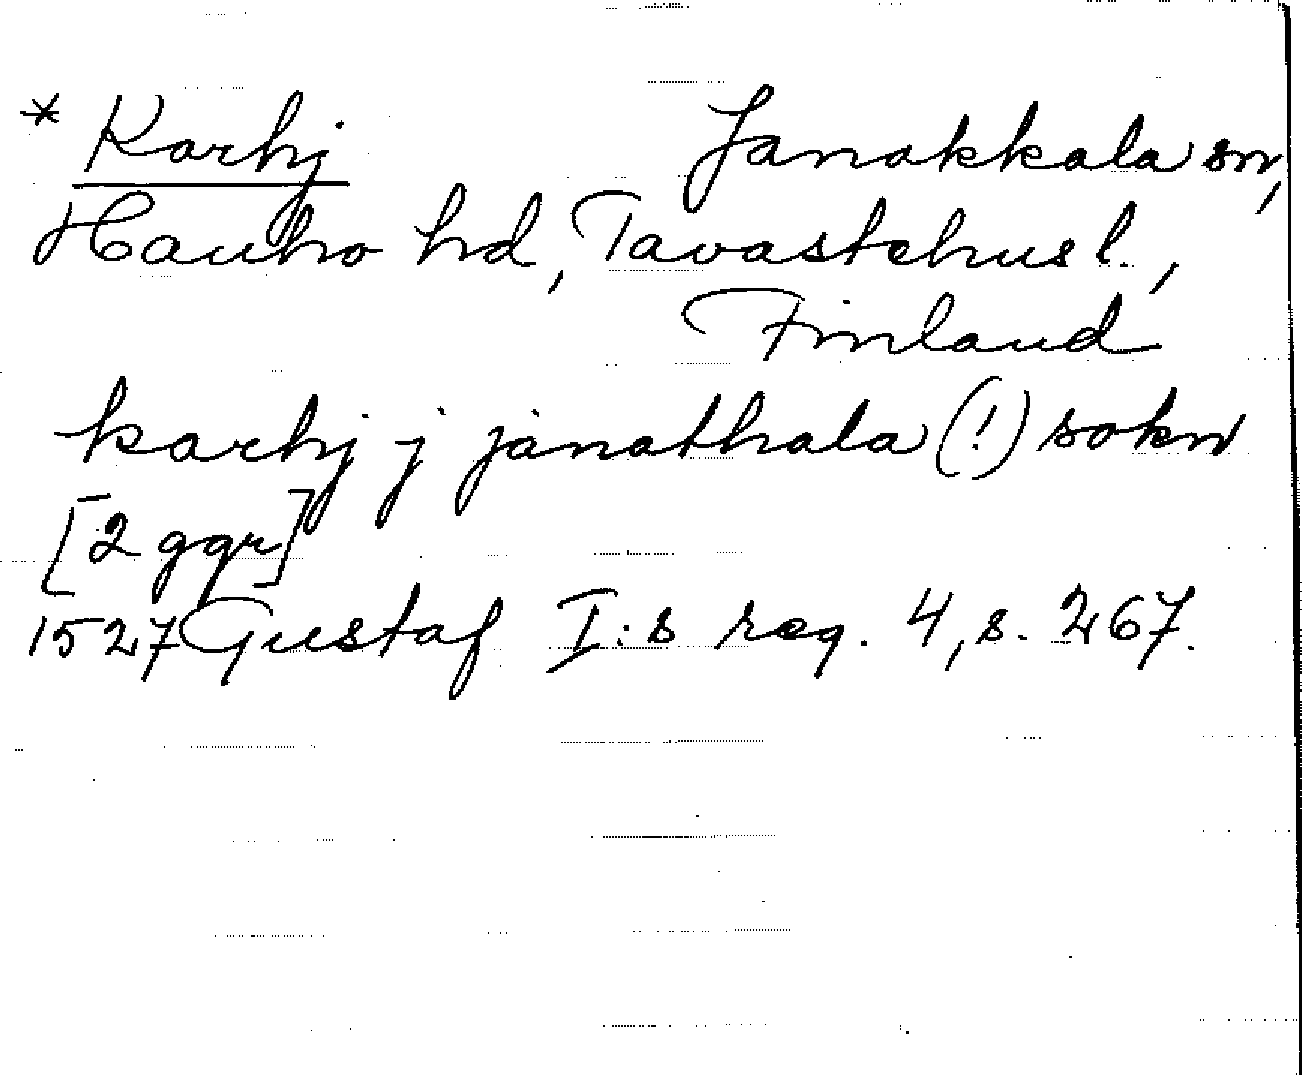 * Karhj Janakkala sn,
Hauho hd, Tavastehus l.,
Finland
karhj j janathala (!) sokn
[2 ggr]
1527 Gustaf I:s reg. 4, s. 267.